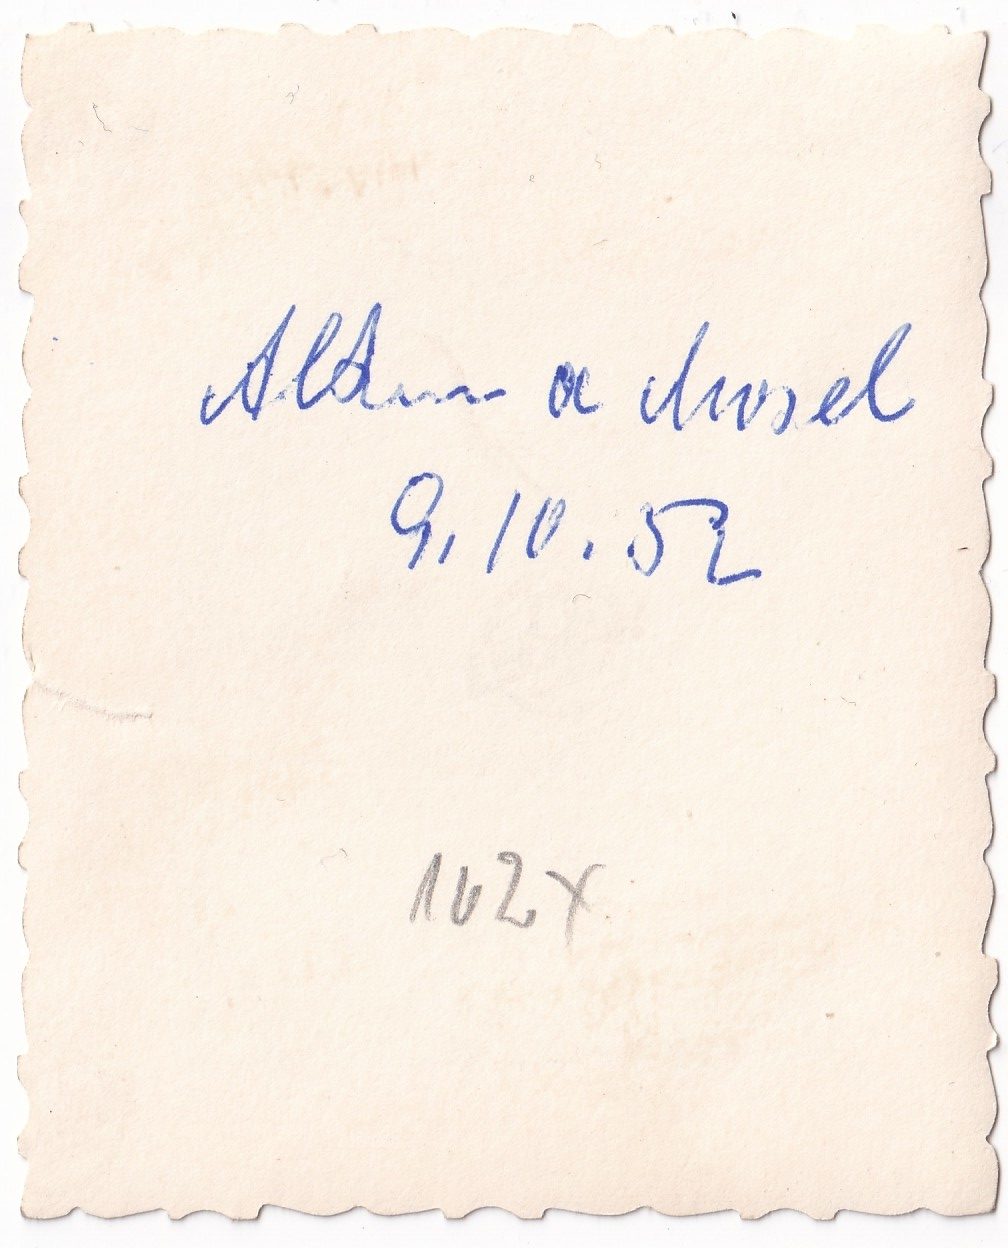 Alken a Mosel
9.10.52
102x